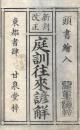 頭書繪入
新刻
改正
庭訓往來諺解
東都書肆
甘泉堂梓